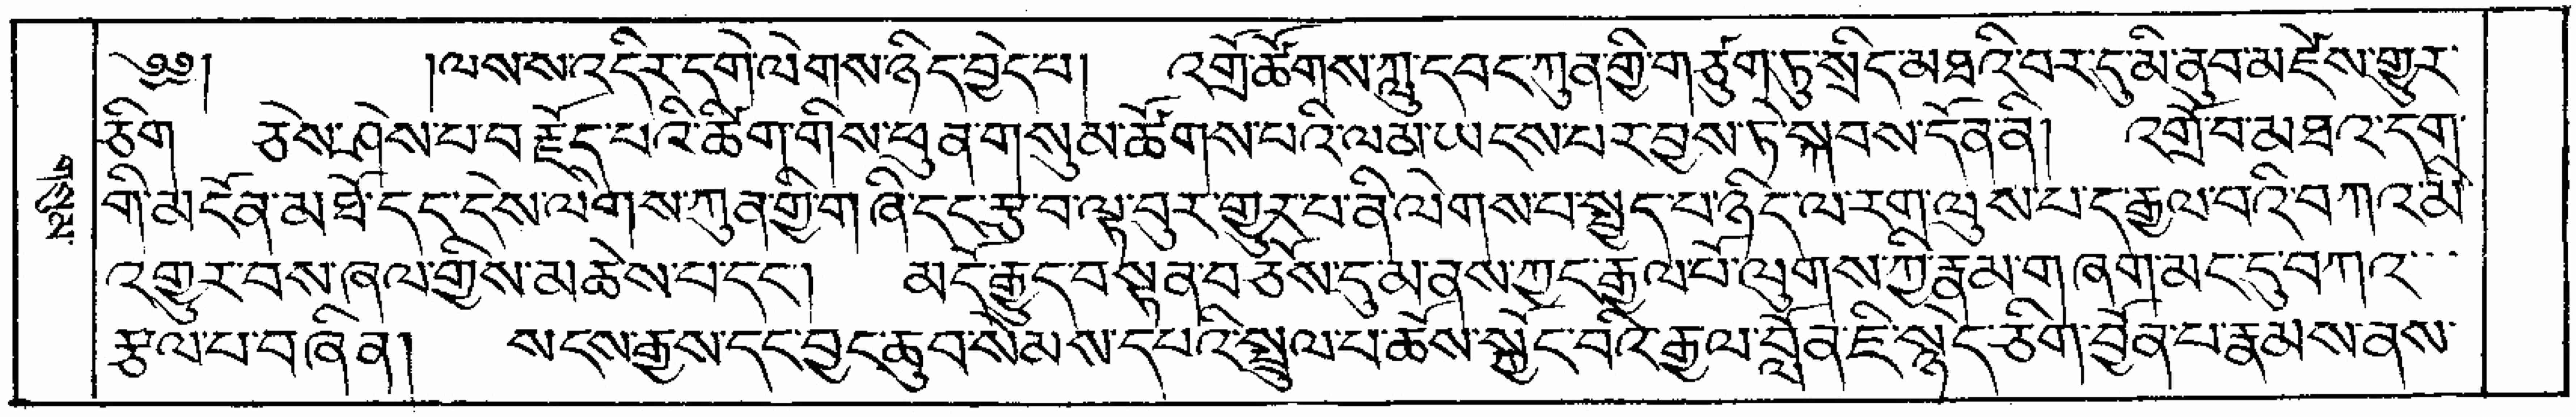 ༄༅། །ལས་ས་འདིར་དགེ་ལེགས་ཉིད་བྱེད་པ། འགྲོ་ཚོགས་ཀླུ་དབང་ཀུན་གྱི་གཙུག་ཏུ་སྲིད་མཐའི་བར་དུ་མི་ནུབ་མཛེས་གྱུར་
ཅིག ཅེས་ཤེས་པ་བརྗོད་པའི་ཚིག་གིས་ཕུན་གསུམ་ཚོགས་པའི་ལམ་ཡངས་པར་བྱས་ཏེ་སྐབས་དོན་ནི། འགྲོ་བ་མཐའ་དག་
གི་མངོན་མཐོ་དང་ངེས་ལེགས་ཀུན་གྱི་གཞི་དང་རྩ་བ་ལྟ་བུར་གྱུར་པ་ནི་ལེགས་པ་སྤྱད་པ་ཉིད་ལ་རག་ལུས་པ་ད་རྒྱལ་བའི་བཀའ་མི་
འགྱུར་བས་ཞལ་གྱིས་མཆེས་པ་དང་། མདོ་རྒྱུད་བསྟན་བཅོས་དུ་མ་ནས་ཀྱང་རྒྱལ་པོ་ལུགས་ཀྱི་རྣམ་གཞག་མང་དུ་བཀའ་
རྩལ་པ་བཞིན། སངས་རྒྱས་དང་བྱང་ཆུབ་སེམས་དཔའི་སྤྲུལ་པ་ཆོས་སྐྱོང་བའི་རྒྱལ་བློན་ཇི་སྙེད་ཅིག་བྱོན་པ་རྣམས་ནས་